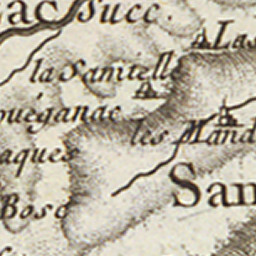 ac Succ.
Las
la Samtelle
ouéganac
les Mand
aques
San
Bosc